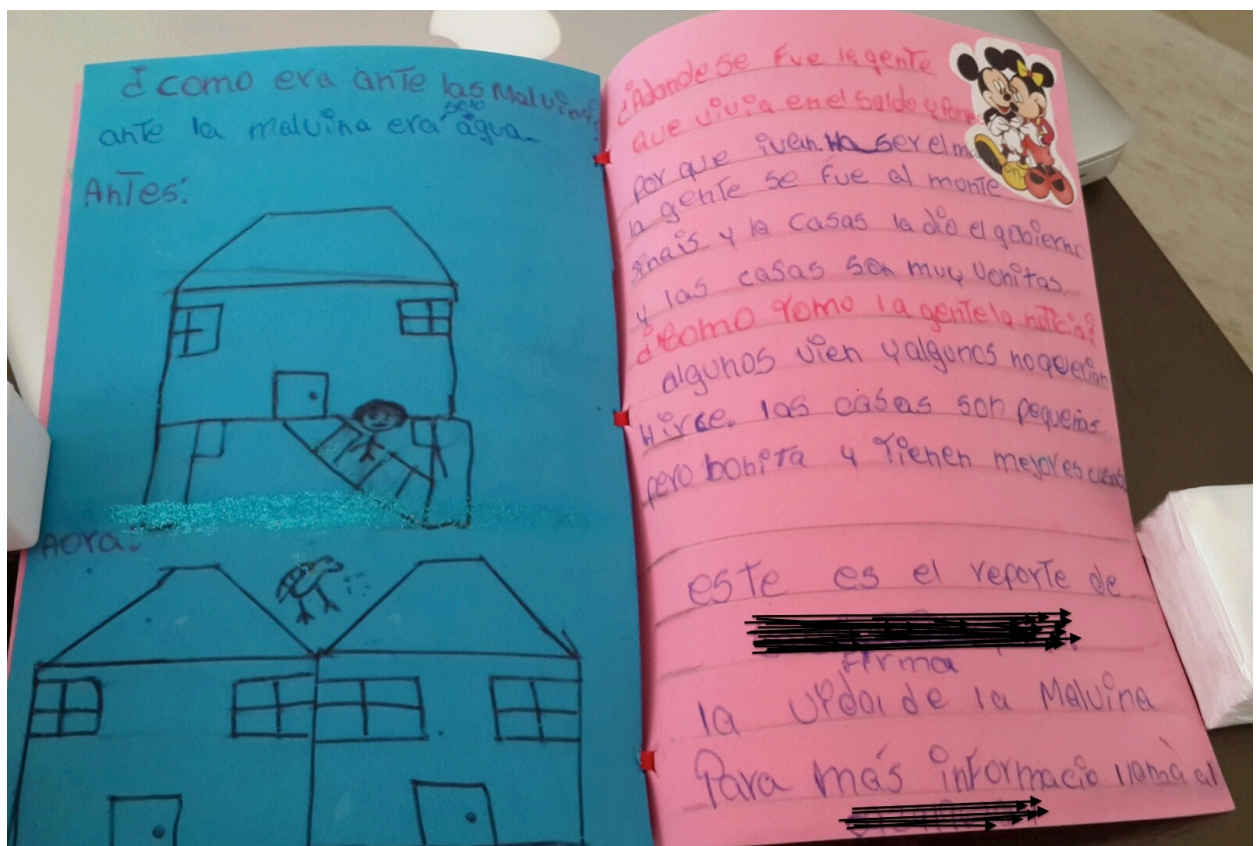 ¿como era ante las Malvinas
ante la malvina era solo agua.
Antes:
Aora.
¿Adonde se fue la gente
que vivia en el Salado y
por que ivan Ha ser el
la gente se fue al monte
sinais y la casas la dio el gobierno
y las casas son muy vonitas.
¿Como Tomo la gente la noticia?
algunos vien y algunos no querian
Hirce. las casas son pequeñas
pero bonita y Tienen mejores cosas
este es el reporte de
firma
la vida de la Malvina
Para más informacio llamá al